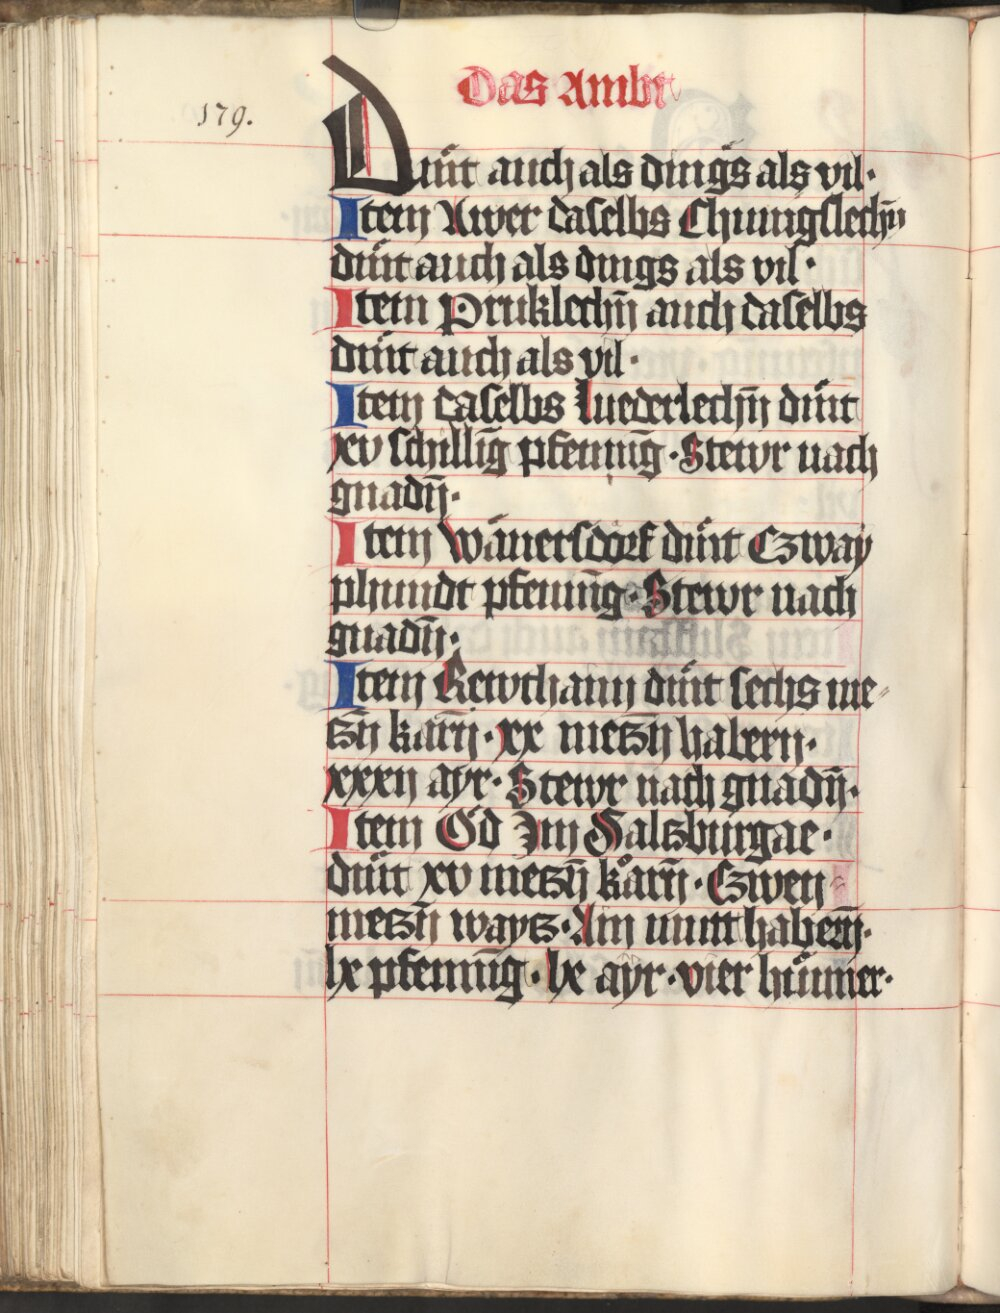 Das Ambt
179.
Dint auch als dings als vil·
Item Awer daselbs Chunigslechn̄
dint auch als dings als vil·
Item Pruklechn̄ auch daselbs
dint auch als vil·
Item daselbs luederlechn̄ dint
xv schilling pfenning· Stewr nach
gnadn̄·
Item Wánersdorf dint Czway
phundt pfenning· Stewr nach
gnadn̄·
Item Rewthann dint sechs me-
tzn̄ karn̄· xx metzn̄ habern·
xxxii ayr· Stewr nach gnadn̄·
Item Ód Im Saltzburgae·
dint xv metzn̄ karn̄· Czwen
metzn̄ waytz· Ain mutt habern̄·
lx pfenning· lx ayr· vier hünner·